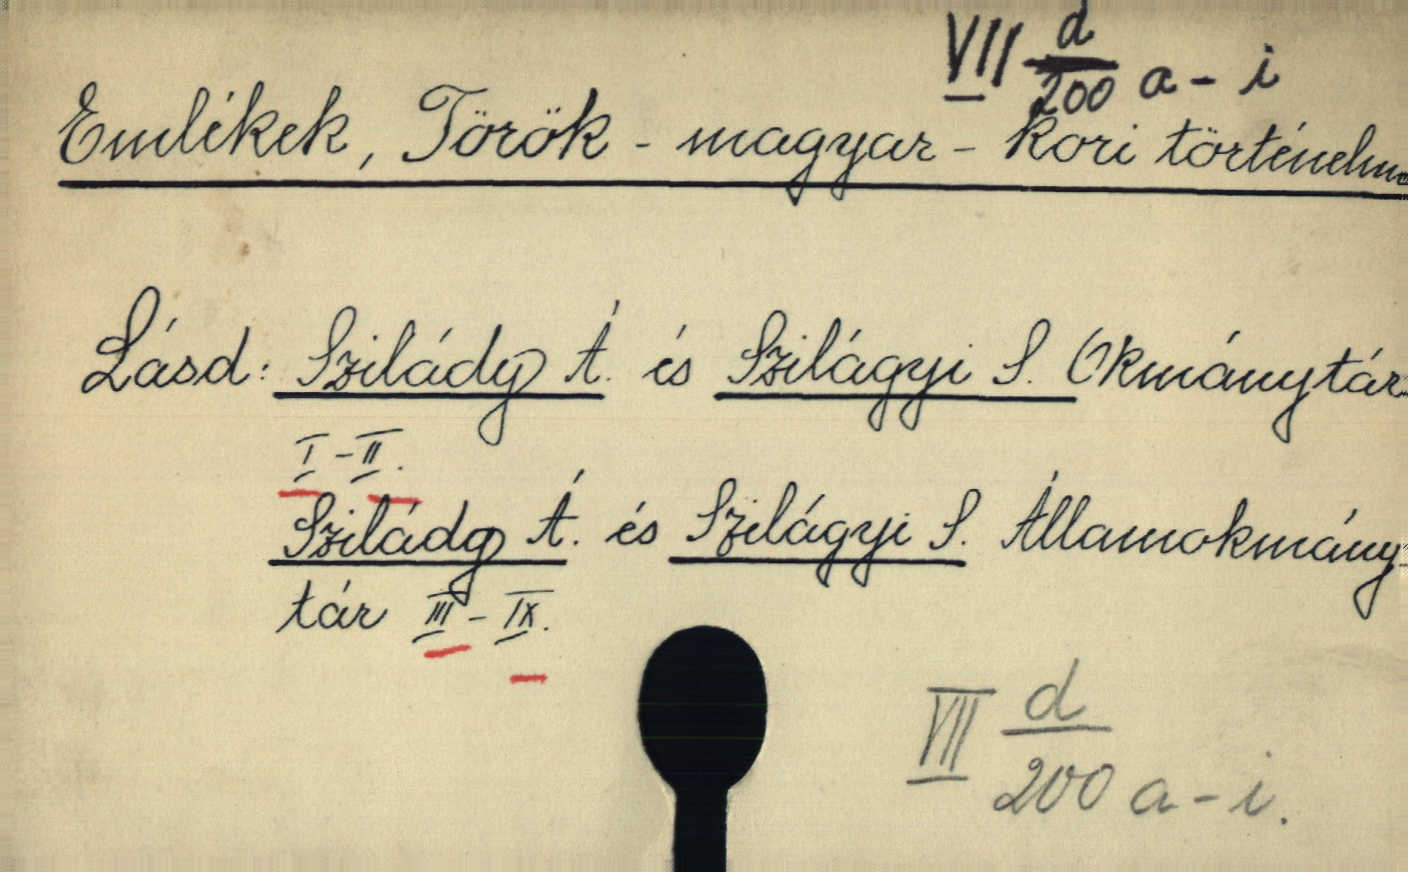 VII d/200 a - i
Emlékek, Török - magyar - kori történelm
Lásd: Szilády Á. és Szilágyi S. Okmánytár
I - II.
Szilády Á. és Szilágyi S. Államokmány-
tár III - IX.
VII d/200 a - i.